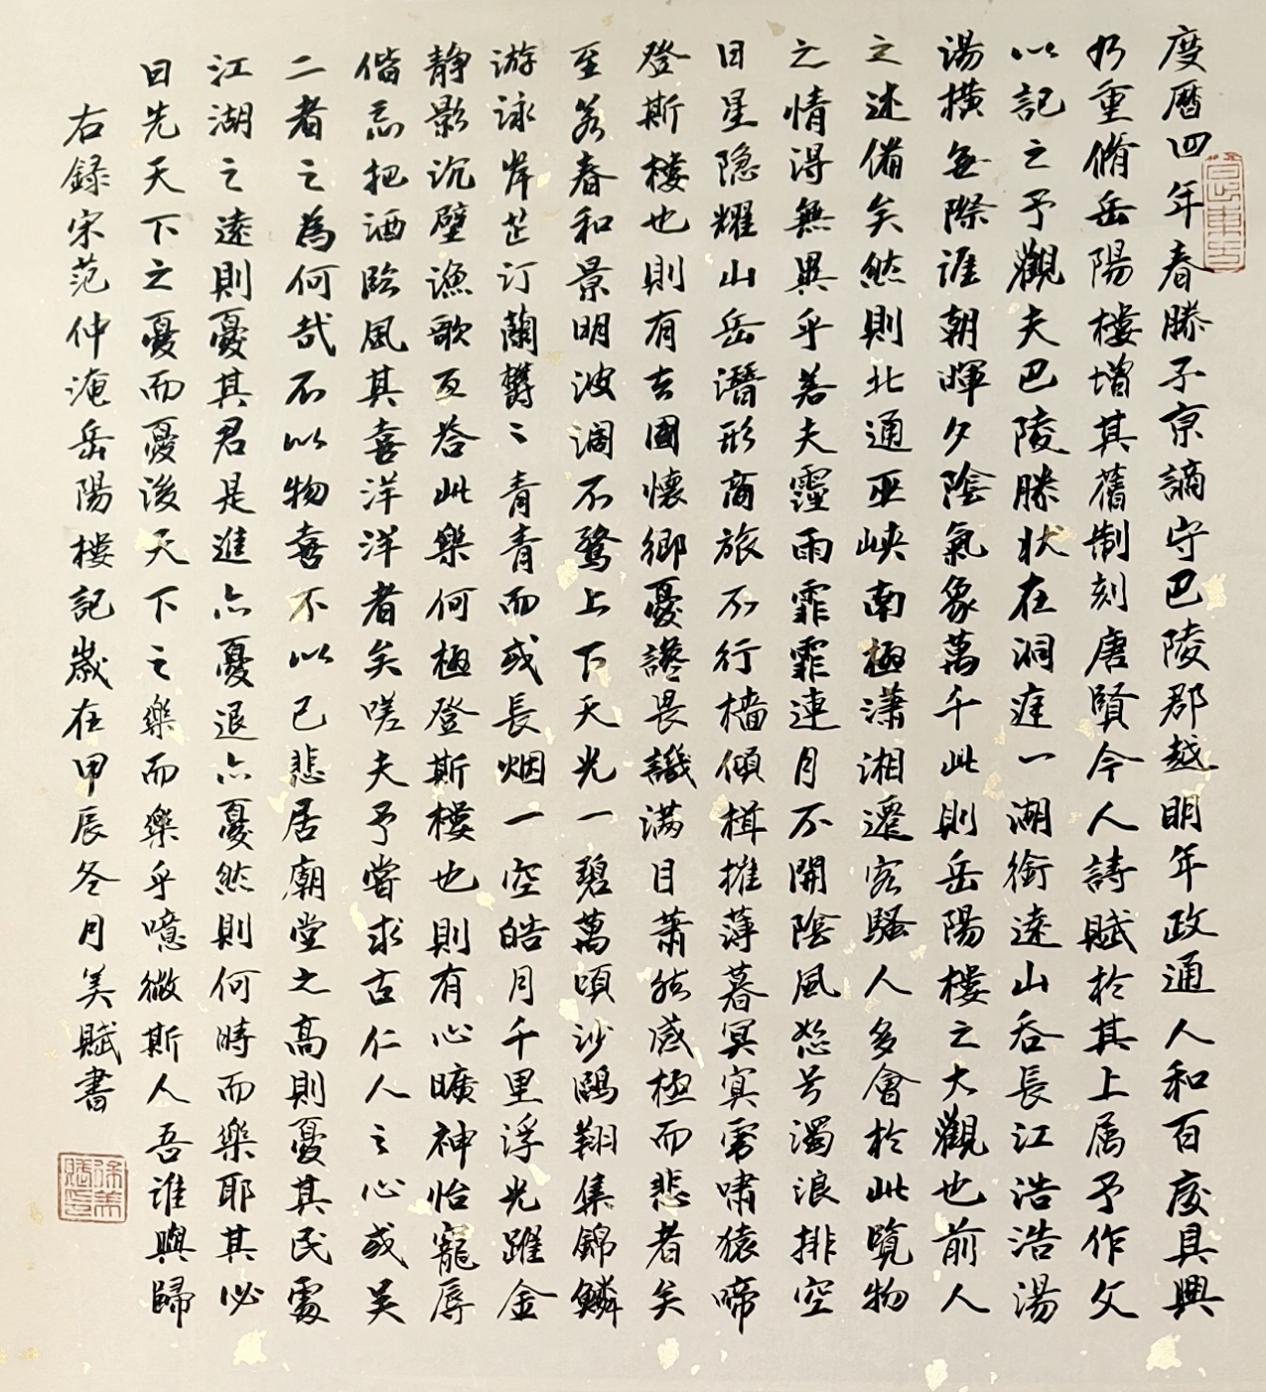 度曆四年春滕子京謫守巴陵郡越明年政通人和百廢具興
乃重脩岳陽樓增其舊制刻唐賢今人詩賦於其上属予作文
以記之予觀夫巴陵勝状在洞庭一湖銜遠山吞長江浩浩湯
湯橫無際涯朝暉夕陰氣象萬千此則岳陽樓之大觀也前人
之述備矣然則北通巫峽南極潇湘遷客騷人多會於此覽物
之情得無異乎若夫霪雨霏霏連月不開陰風怒号濁浪排空
日星隐耀山岳潛形商旅不行檣傾楫摧薄暮冥冥虎啸猿啼
登斯樓也則有去國懷鄉憂讒畏譏满目萧然感極而悲者矣
至若春和景明波澜不驚上下天光一碧萬頃沙鷗翔集錦鳞
游泳岸芷汀蘭欝〻青青而或長烟一空皓月千里浮光躍金
静影沉壁漁歌互答此樂何極登斯樓也則有心曠神怡寵辱
偕忘把酒臨風其喜洋洋者矣嗟夫予嘗求古仁人之心或异
二者之為何哉不以物喜不以己悲居廟堂之高則憂其民處
江湖之遠則憂其君是進亦憂退亦憂然則何時而樂耶其必
曰先天下之憂而憂後天下之樂而樂乎噫微斯人吾誰與歸
右録宋范仲淹岳陽樓記歲在甲辰冬月美賦書